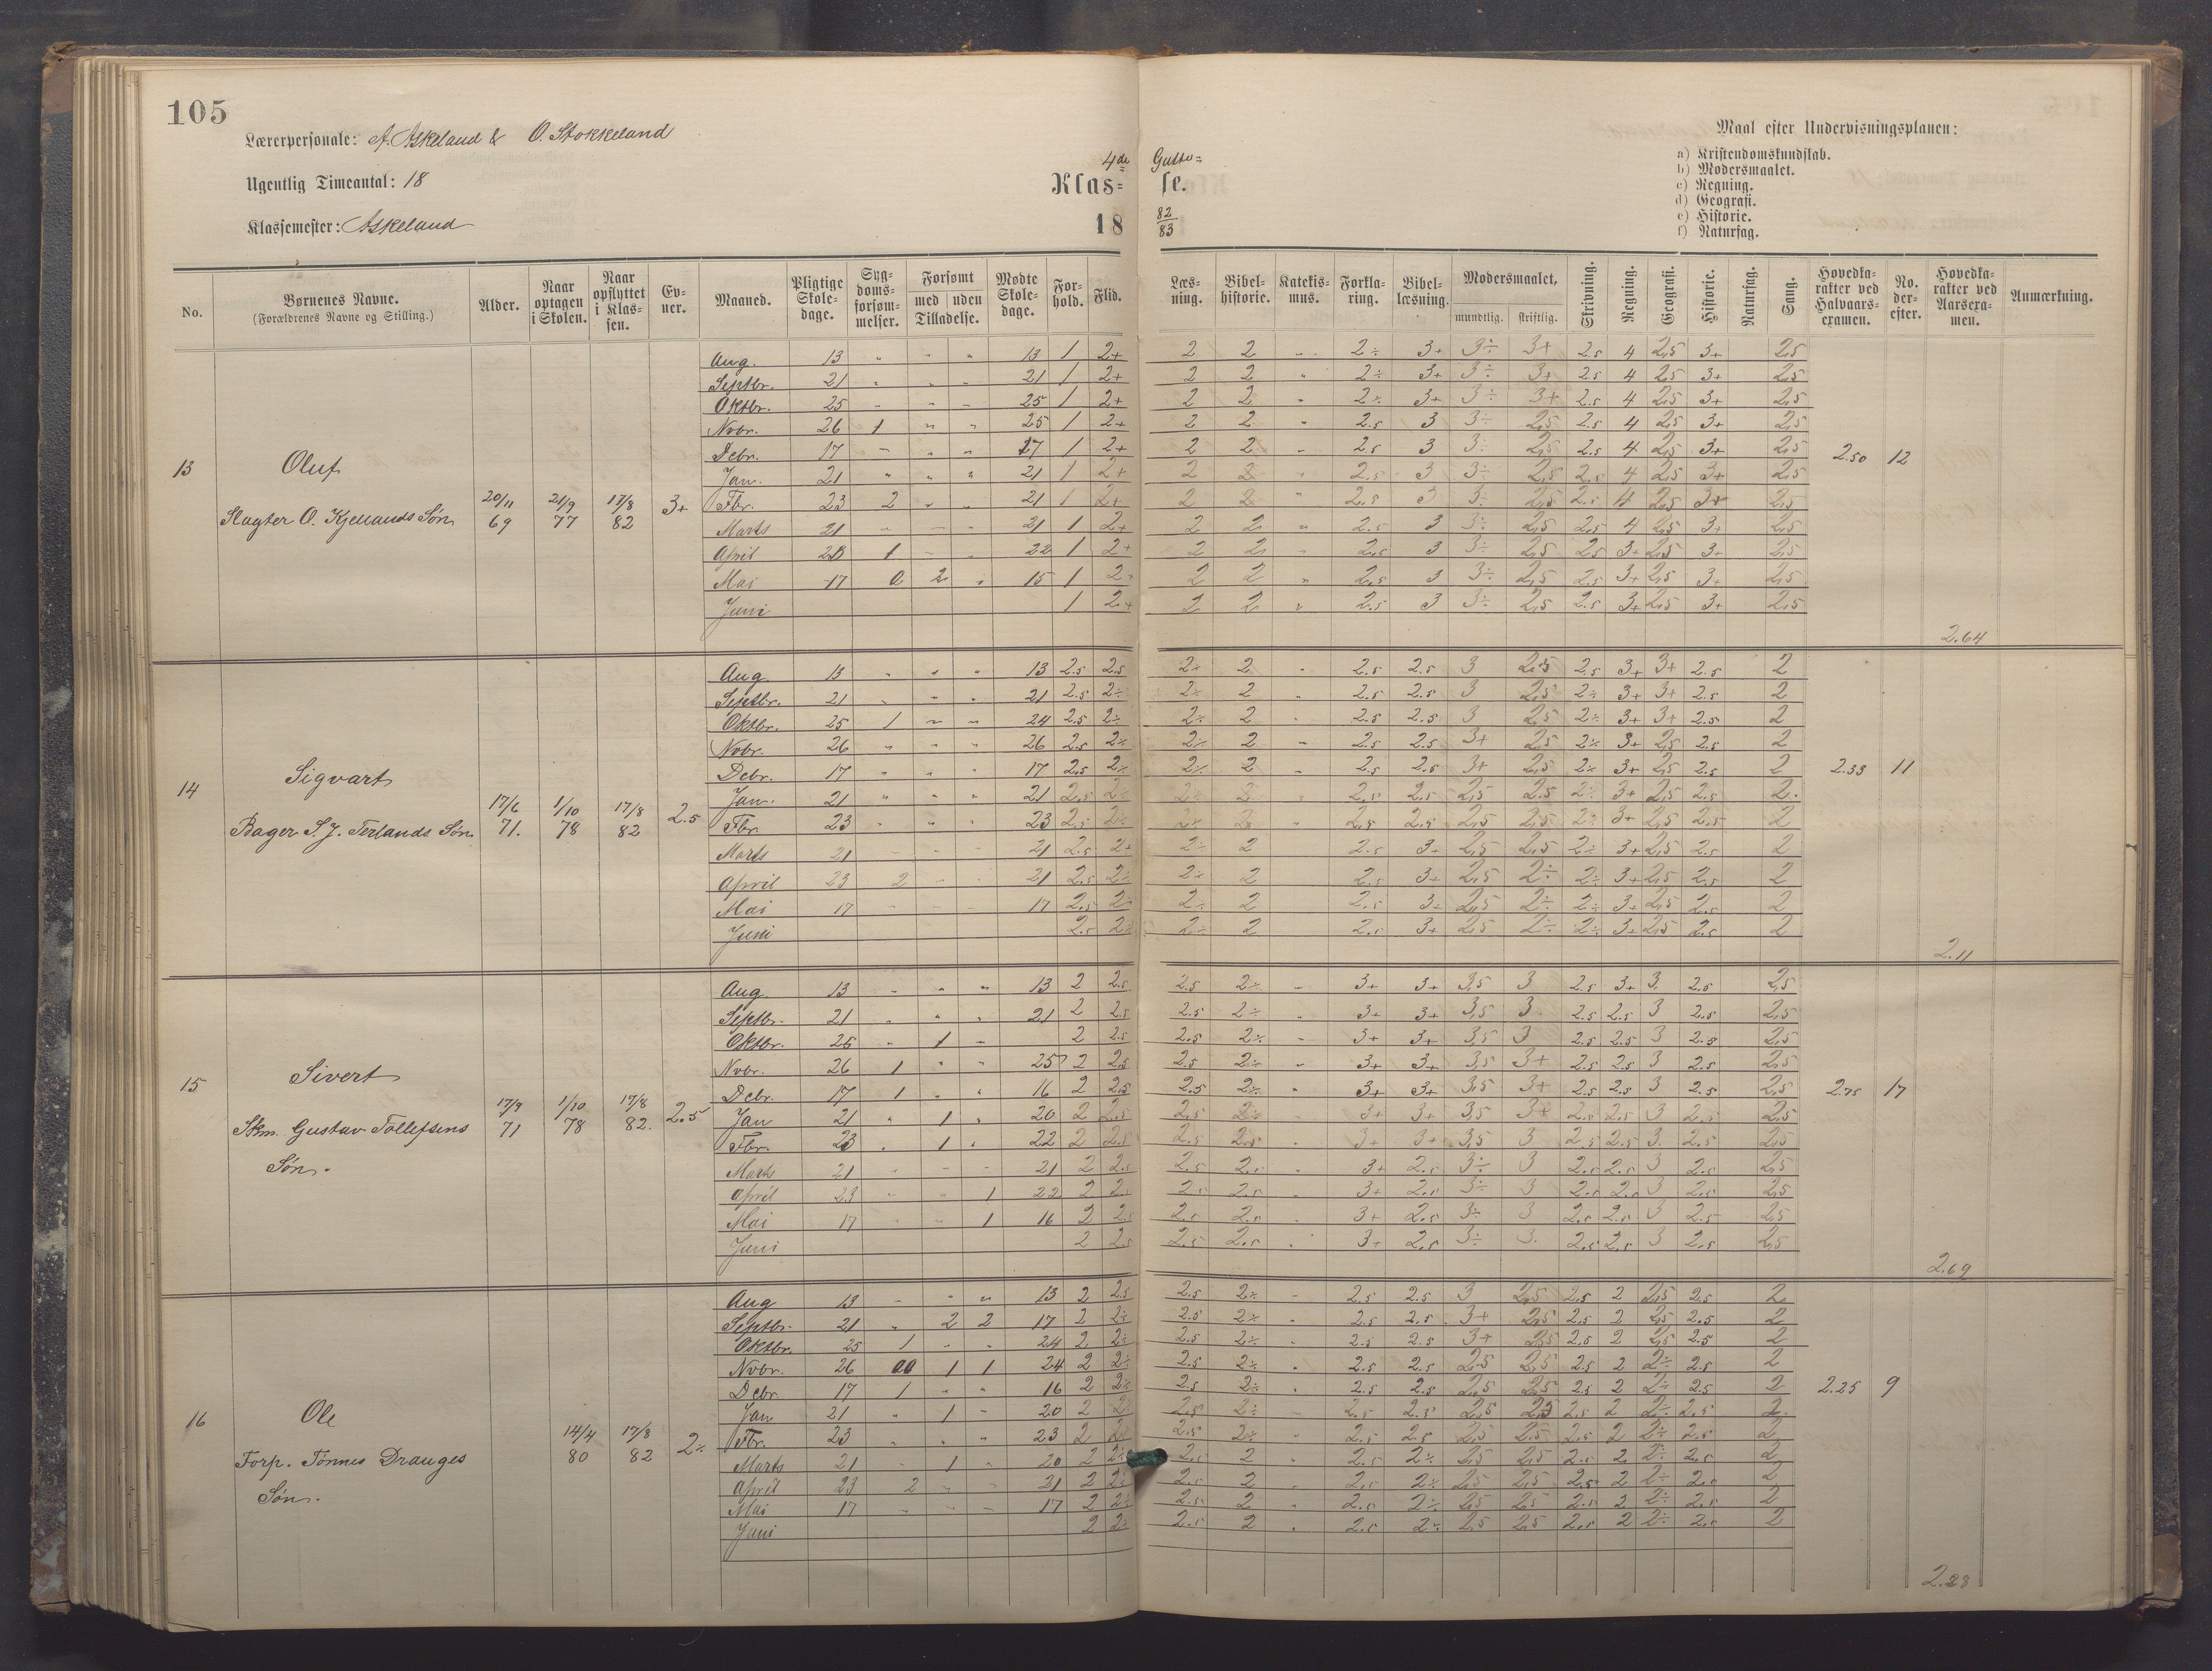 105
Lærerpersonale: A. Askeland & O. Stokkeland
Ugentlig Timeantal: 18
Klassemester: Askeland
4de Gutte=
Klas= se.
18 82/83
Maal efter Undervisningsplanen:
a) Kristendomskundskab.
b) Modersmaalet.
c) Regning.
d) Geografi.
e) Historie.
f) Naturfag.
No. | Børnenes Navne. (Forældrenes Navne og Stilling.) | Alder. | Naar optagen i Skolen. | Naar opflyttet i Klassen. | Evner. | Maaned. | Pligtige Skoledage. | Sygdomsforsømmelser. | Forsømt med Tilladelse. | uden | Mødte Skoledage. | Forhold. | Flid. | Læsning. | Bibelhistorie. | Katekismus. | Forklaring. | Bibellæsning. | Modersmaalet, mundtlig. | skriftlig. | Skrivning. | Regning. | Geografi. | Historie. | Naturfag. | Gang. | Hovedkarakter ved Halvaarsexamen. | No. derefter. | Hovedkarakter ved Aarsexamen. | Anmærkning.
13 Oluf
Slagter O. Kjellands Søn 20/11 69 21/9 77 17/8 82 3+
Aug. 13 " " " 13 1 2+ 2 2 " 2÷ 3+ 3÷ 3+ 2.5 4 2,5 3+ 2,5
Septbr. 21 " " " 21 1 2+ 2 2 " 2÷ 3+ 3÷ 3+ 2.5 4 2,5 3+ 2,5
Oktbr. 25 " " " 25 1 2+ 2 2 " 2÷ 3+ 3÷ 3+ 2.5 4 2,5 3+ 2,5
Nvbr. 26 1 " " 25 1 2+ 2 2 " 2.5 3 3÷ 2,5 2.5 4 2,5 3+ 2,5
Debr. 17 " " " 17 1 2+ 2 2 " 2.5 3 3÷ 2,5 2.5 4 2,5 3+ 2,5 2.50 12
Jan. 21 " " " 21 1 2+ 2 2 " 2.5 3 3÷ 2,5 2.5 4 2,5 3+ 2,5
Fbr. 23 2 " " 21 1 2+ 2 2 " 2.5 3 3÷ 2,5 2.5 4 2,5 3+ 2,5
Marts 21 " " " 21 1 2+ 2 2 " 2.5 3 3÷ 2,5 2.5 4 2,5 3+ 2,5
April 23 1 " " 22 1 2+ 2 2 " 2.5 3 3÷ 2,5 2.5 3+ 2,5 3+ 2,5
Mai 17 0 2 " 15 1 2+ 2 2 " 2.5 3 3÷ 2,5 2.5 3+ 2,5 3+ 2,5
Juni 1 2+ 2 2 " 2.5 3 3÷ 2,5 2.5 3+ 2,5 3+ 2,5
2.64
14 Sigvart
Bager S. J. Terlands Søn. 17/6 71. 1/10 78 17/8 82 2.5
Aug. 13 " " " 13 2.5 2.5 2÷ 2 " 2.5 2.5 3 2.5 2.5 3+ 3+ 2.5 2
Septbr. 21 " " " 21 2.5 2÷ 2÷ 2 " 2.5 2.5 3 2,5 2÷ 3+ 3+ 2.5 2
Oktbr. 25 1 " " 24 2.5 2÷ 2÷ 2 " 2.5 2.5 3 2,5 2÷ 3+ 3+ 2.5 2
Nvbr. 26 " " " 26 2.5 2÷ 2÷ 2 " 2.5 2.5 3+ 2,5 2÷ 3+ 2,5 2.5 2
Debr. 17 " " " 17 2,5 2÷ 2÷ 2 " 2.5 2.5 3+ 2,5 2÷ 3+ 2,5 2.5 2 2.33 11
Jan. 21 " " " 21 2,5 2÷ 2÷ 2 " 2.5 2.5 2,5 2.5 2÷ 3+ 2,5 2.5 2.
Fbr. 23 " " " 23 2.5 2÷ 2÷ 2 " 2.5 2.5 2,5 2,5 2÷ 3+ 2,5 2.5 2
Marts 21 " " " 21 2.5 2÷ 2÷ 2 2.5 3+ 2,5 2,5 2÷ 3+ 2,5 2.5 2
April 23 2 " " 21 2.5 2÷ 2÷ 2 2.5 3+ 2,5 2÷ 2÷ 3+ 2,5 2.5 2
Mai 17 " " " 17 2.5 2÷ 2÷ 2 2.5 3+ 2,5 2÷ 2÷ 3+ 2,5 2.5 2
Juni 2.5 2÷ 2÷ 2 2.5 3+ 2,5 2÷ 2÷ 3+ 2,5 2.5 2
2.11
15 Sivert
Skm. Gustav Tollefsens Søn. 17/9 71 1/10 78 17/8 82. 2.5
Aug. 13 " " " 13 2 2.5 2.5 2÷ " 3+ 3+ 3,5 3 2.5 3+ 3. 2.5 2,5
Septbr. 21 " " " 21 2 2.5 2.5 2÷ " 3+ 3+ 3,5 3 2.5 2.5 3 2.5 2,5
Oktbr. 25 " 1 " 2 2.5 2.5 2÷ " 3+ 3+ 3,5 3 2.5 2.5 3 2.5 2,5
Nvbr. 26 1 " " 25 2 2.5 2.5 2÷ " 3+ 3+ 3,5 3+ 2.5 2.5 3 2.5 2,5
Debr. 17 1 " " 16 2 2.5 2.5 2÷ " 3+ 3+ 3,5 3+ 2.5 2.5 3 2.5 2,5 2.75 17
Jan 21 " 1 " 20 2 2.5 2.5 2÷ " 3+ 3+ 3,5 3+ 2.5 2.5 3 2.5 2,5
Fbr. 23 " 1 " 22 2 2.5 2.5 2.5 " 3+ 3+ 3,5 3 2.5 2.5 3. 2.5 2,5
Marts 21 " " " 21 2 2.5 2.5 2.5 " 3+ 2.5 3÷ 3 2.5 2.5 3 2.5 2,5
April 23 " " 1 22 2 2.5 2.5 2.5 " 3+ 2.5 3÷ 3 2.5 2.5 3 2.5 2,5
Mai 17 " " 1 16 2 2.5 2.5 2.5 " 3+ 2.5 3÷ 3 2.5 2.5 3 2.5 2,5
Juni 2 2.5 2.5 2.5 " 3+ 2.5 3÷ 3. 2.5 2.5 3 2.5 2,5
2.69
16 Ole
Forp. Tönnes Drauges Søn. 14/4 80 17/8 82 2÷
Aug 13 " " " 13 2 2.5 2.5 2÷ " 2.5 2.5 3 2,5 2.5 2 2,5 2.5 2.
Septbr. 21 " 2 2 17 2 2÷ 2.5 2÷ " 2.5 2.5 3+ 2,5 2.5 2 2,5 2.5 2
Oktbr. 25 1 " " 24 2 2÷ 2.5 2÷ " 2.5 2.5 3+ 2,5 2.5 2 2,5 2.5 2
Nvbr. 26 1 1 24 2 2÷ 2.5 2÷ " 2.5 2.5 2,5 2,5 2.5 2 2÷ 2.5 2
Debr. 17 1 " " 16 2 2÷ 2.5 2÷ " 2.5 2.5 2,5 2,5 2.5 2 2÷ 2.5 2 2.25 9
Jan 21 " 1 " 20 2 2÷ 2.5 2÷ " 2.5 2.5 2,5 2,5 2.5 2 2÷ 2.5 2.
Fbr. 23 " " " 23 2 2÷ 2.5 2÷ " 2.5 2.5 2,5 2.5 2.5 2 2÷ 2.5 2
Marts 21 " 1 " 20 2 2÷ 2.5 2 " 2.5 2÷ 2,5 2,5 2.5 2 2÷ 2.5 2
April 23 2 " " 21 2 2÷ 2.5 2 " 2.5 2÷ 2,5 2,5 2.5 2 2÷ 2.5 2
Mai 17 " " " 17 2 2÷ 2.5 2 " 2.5 2÷ 2,5 2,5 2.5 2 2÷ 2.5 2
Juni 2 2÷ 2.5 2 " 2.5 2÷ 2,5 2,5 2.5 2 2÷ 2.5 2
2.28